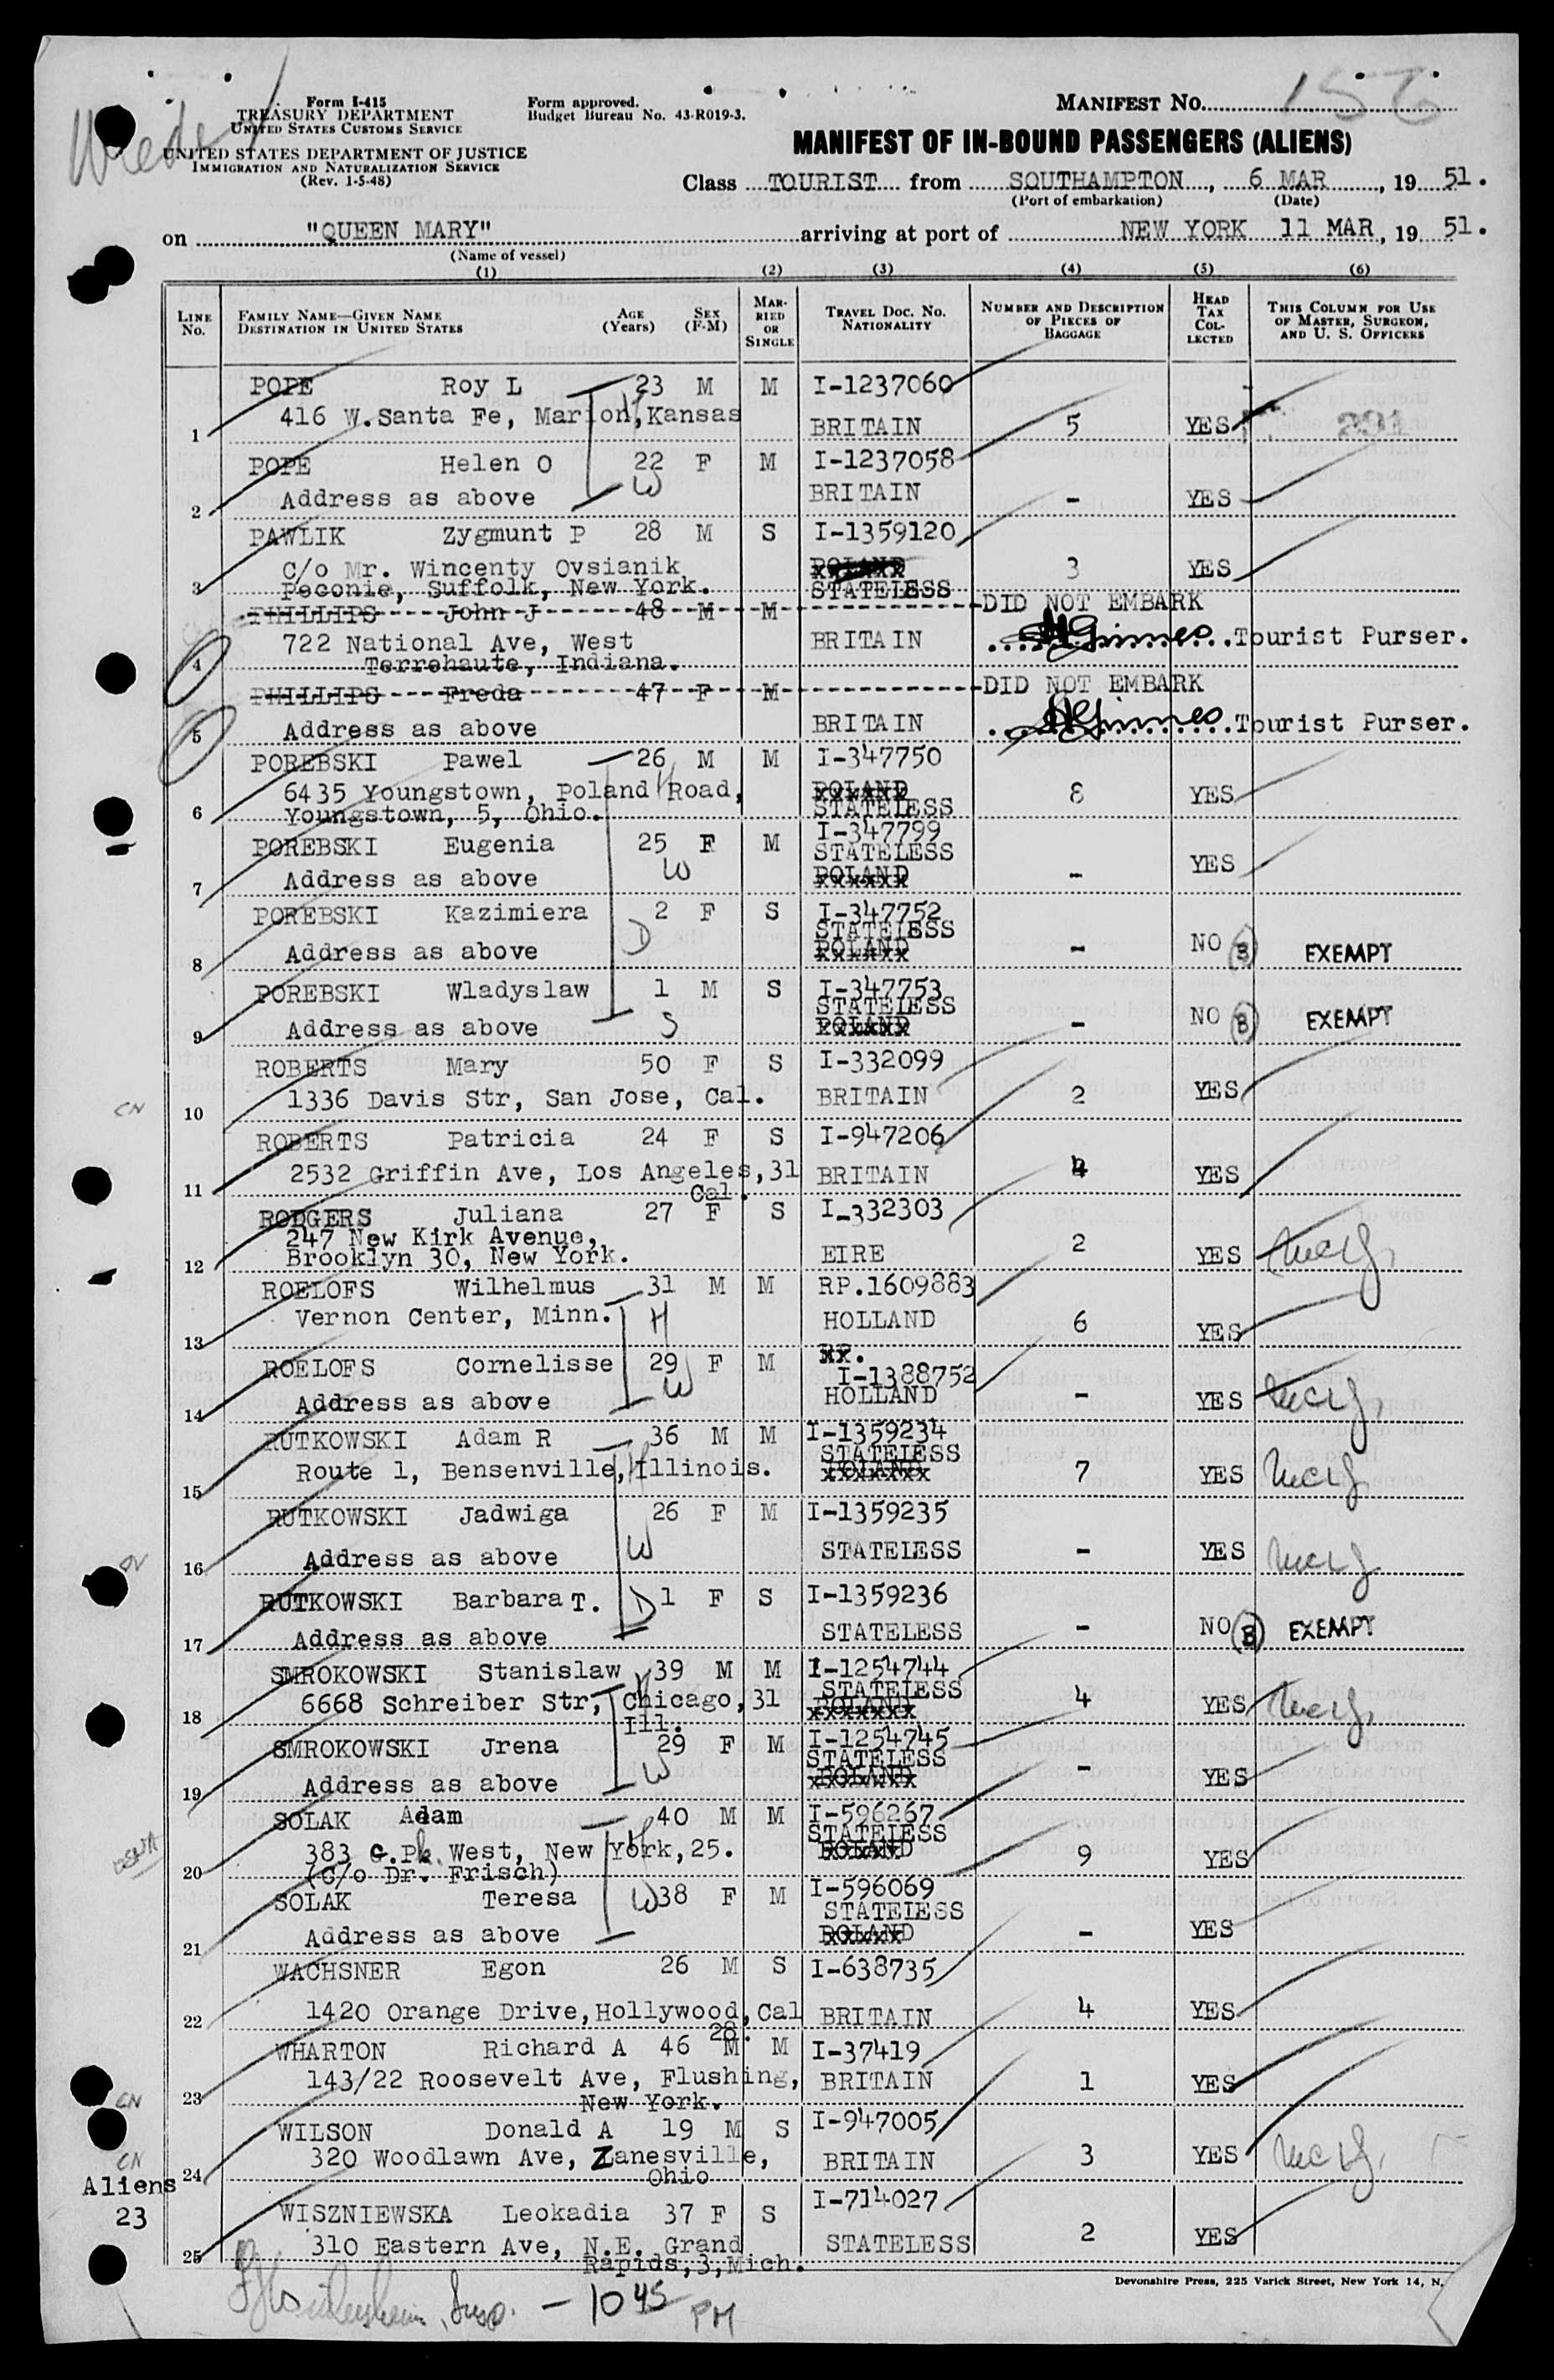 Form I-415
TREASURY DEPARTMENT
UNITED STATES CUSTOMS SERVICE
UNITED STATES DEPARTMENT OF JUSTICE
IMMIGRATION AND NATURALIZATION SERVICE
(Rev. 1-5-48)
Form approved.
Budget Bureau No. 43-R019-3.
MANIFEST NO. 156
MANIFEST OF IN-BOUND PASSENGERS (ALIENS)
Class TOURIST from SOUTHAMPTON, 6 MAR, 19 51.
(Port of embarkation) (Date)
on "QUEEN MARY" arriving at port of NEW YORK 11 MAR, 19 51.
(Name of vessel)
(1) (2) (3) (4) (5) (6)
LINE NO. FAMILY NAME—GIVEN NAME DESTINATION IN UNITED STATES AGE (Years) SEX (F-M) MARRIED OR SINGLE TRAVEL DOC. NO. NATIONALITY NUMBER AND DESCRIPTION OF PIECES OF BAGGAGE HEAD TAX COLLECTED THIS COLUMN FOR USE OF MASTER, SURGEON, AND U. S. OFFICERS
POPE Roy L 23 M M I-1237060
1 416 W.Santa Fe, Marion, Kansas H BRITAIN 5 YES 291
POPE Helen O 22 F M I-1237058
2 Address as above W BRITAIN - YES
PAWLIK Zygmunt P 28 M S I-1359120
C/o Mr. Wincenty Ovsianik POLAND 3 YES
3 Peconie, Suffolk, New York. STATELESS
PHILLIPS John J 48 M M DID NOT EMBARK
722 National Ave, West BRITAIN Tourist Purser.
4 Terrehaute, Indiana.
PHILLIPS Freda 47 F M DID NOT EMBARK
5 Address as above BRITAIN Tourist Purser.
POREBSKI Pawel 26 M M I-347750
6435 Youngstown, Poland Road, H POLAND 8 YES
6 Youngstown, 5, Ohio. STATELESS
POREBSKI Eugenia 25 F M I-347799
STATELESS YES
7 Address as above W POLAND -
POREBSKI Kazimiera 2 F S I-347752
STATELESS
8 Address as above D POLAND - NO B EXEMPT
POREBSKI Wladyslaw 1 M S I-347753
STATELESS
9 Address as above S POLAND - NO B EXEMPT
ROBERTS Mary 50 F S I-332099
CN 10 1336 Davis Str, San Jose, Cal. BRITAIN 2 YES
ROBERTS Patricia 24 F S I-947206
11 2532 Griffin Ave, Los Angeles, 31 BRITAIN 4 YES
Cal.
RODGERS Juliana 27 F S I-332303
247 New Kirk Avenue,
12 Brooklyn 30, New York. EIRE 2 YES
ROELOFS Wilhelmus 31 M M RP.1609883
13 Vernon Center, Minn. H HOLLAND 6 YES
ROELOFS Cornelisse 29 F M I-1388752
14 Address as above W HOLLAND - YES
RUTKOWSKI Adam R 36 M M I-1359234
STATELESS
15 Route 1, Bensenville, Illinois. H POLAND 7 YES
RUTKOWSKI Jadwiga 26 F M I-1359235
16 Address as above W STATELESS - YES
RUTKOWSKI Barbara T. D 1 F S I-1359236
17 Address as above STATELESS - NO B EXEMPT
SMROKOWSKI Stanislaw 39 M M I-1254744
STATELESS
18 6668 Schreiber Str, Chicago, 31 H POLAND 4 YES
Ill.
SMROKOWSKI Jrena 29 F M I-1254745
STATELESS
19 Address as above W POLAND - YES
SOLAK Adam 40 M M I-596267
STATELESS
383 C.Pk West, New York, 25. H POLAND 9 YES
20 (c/o Dr. Frisch)
SOLAK Teresa W 38 F M I-596069
STATELESS
21 Address as above POLAND - YES
WACHSNER Egon 26 M S I-638735
22 1420 Orange Drive, Hollywood, Cal BRITAIN 4 YES
28.
WHARTON Richard A 46 M M I-37419
23 143/22 Roosevelt Ave, Flushing, BRITAIN 1 YES
CN New York.
WILSON Donald A 19 M S I-947005
CN 24 320 Woodlawn Ave, Zanesville, BRITAIN 3 YES
Ohio
Aliens
23
WISZNIEWSKA Leokadia 37 F S I-714027
25 310 Eastern Ave, N.E. Grand STATELESS 2 YES
Rapids, 3, Mich.
Insp. - 10 45 PM
Devonshire Press, 225 Varick Street, New York 14, N.